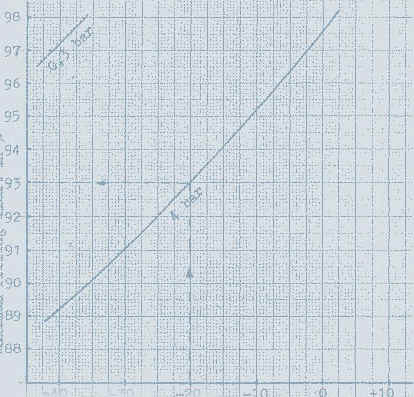 98
97
96
95
94
93
92
91
90
89
88
0,5 bar
4 bar
-40
-30
-20
-10
0
+10